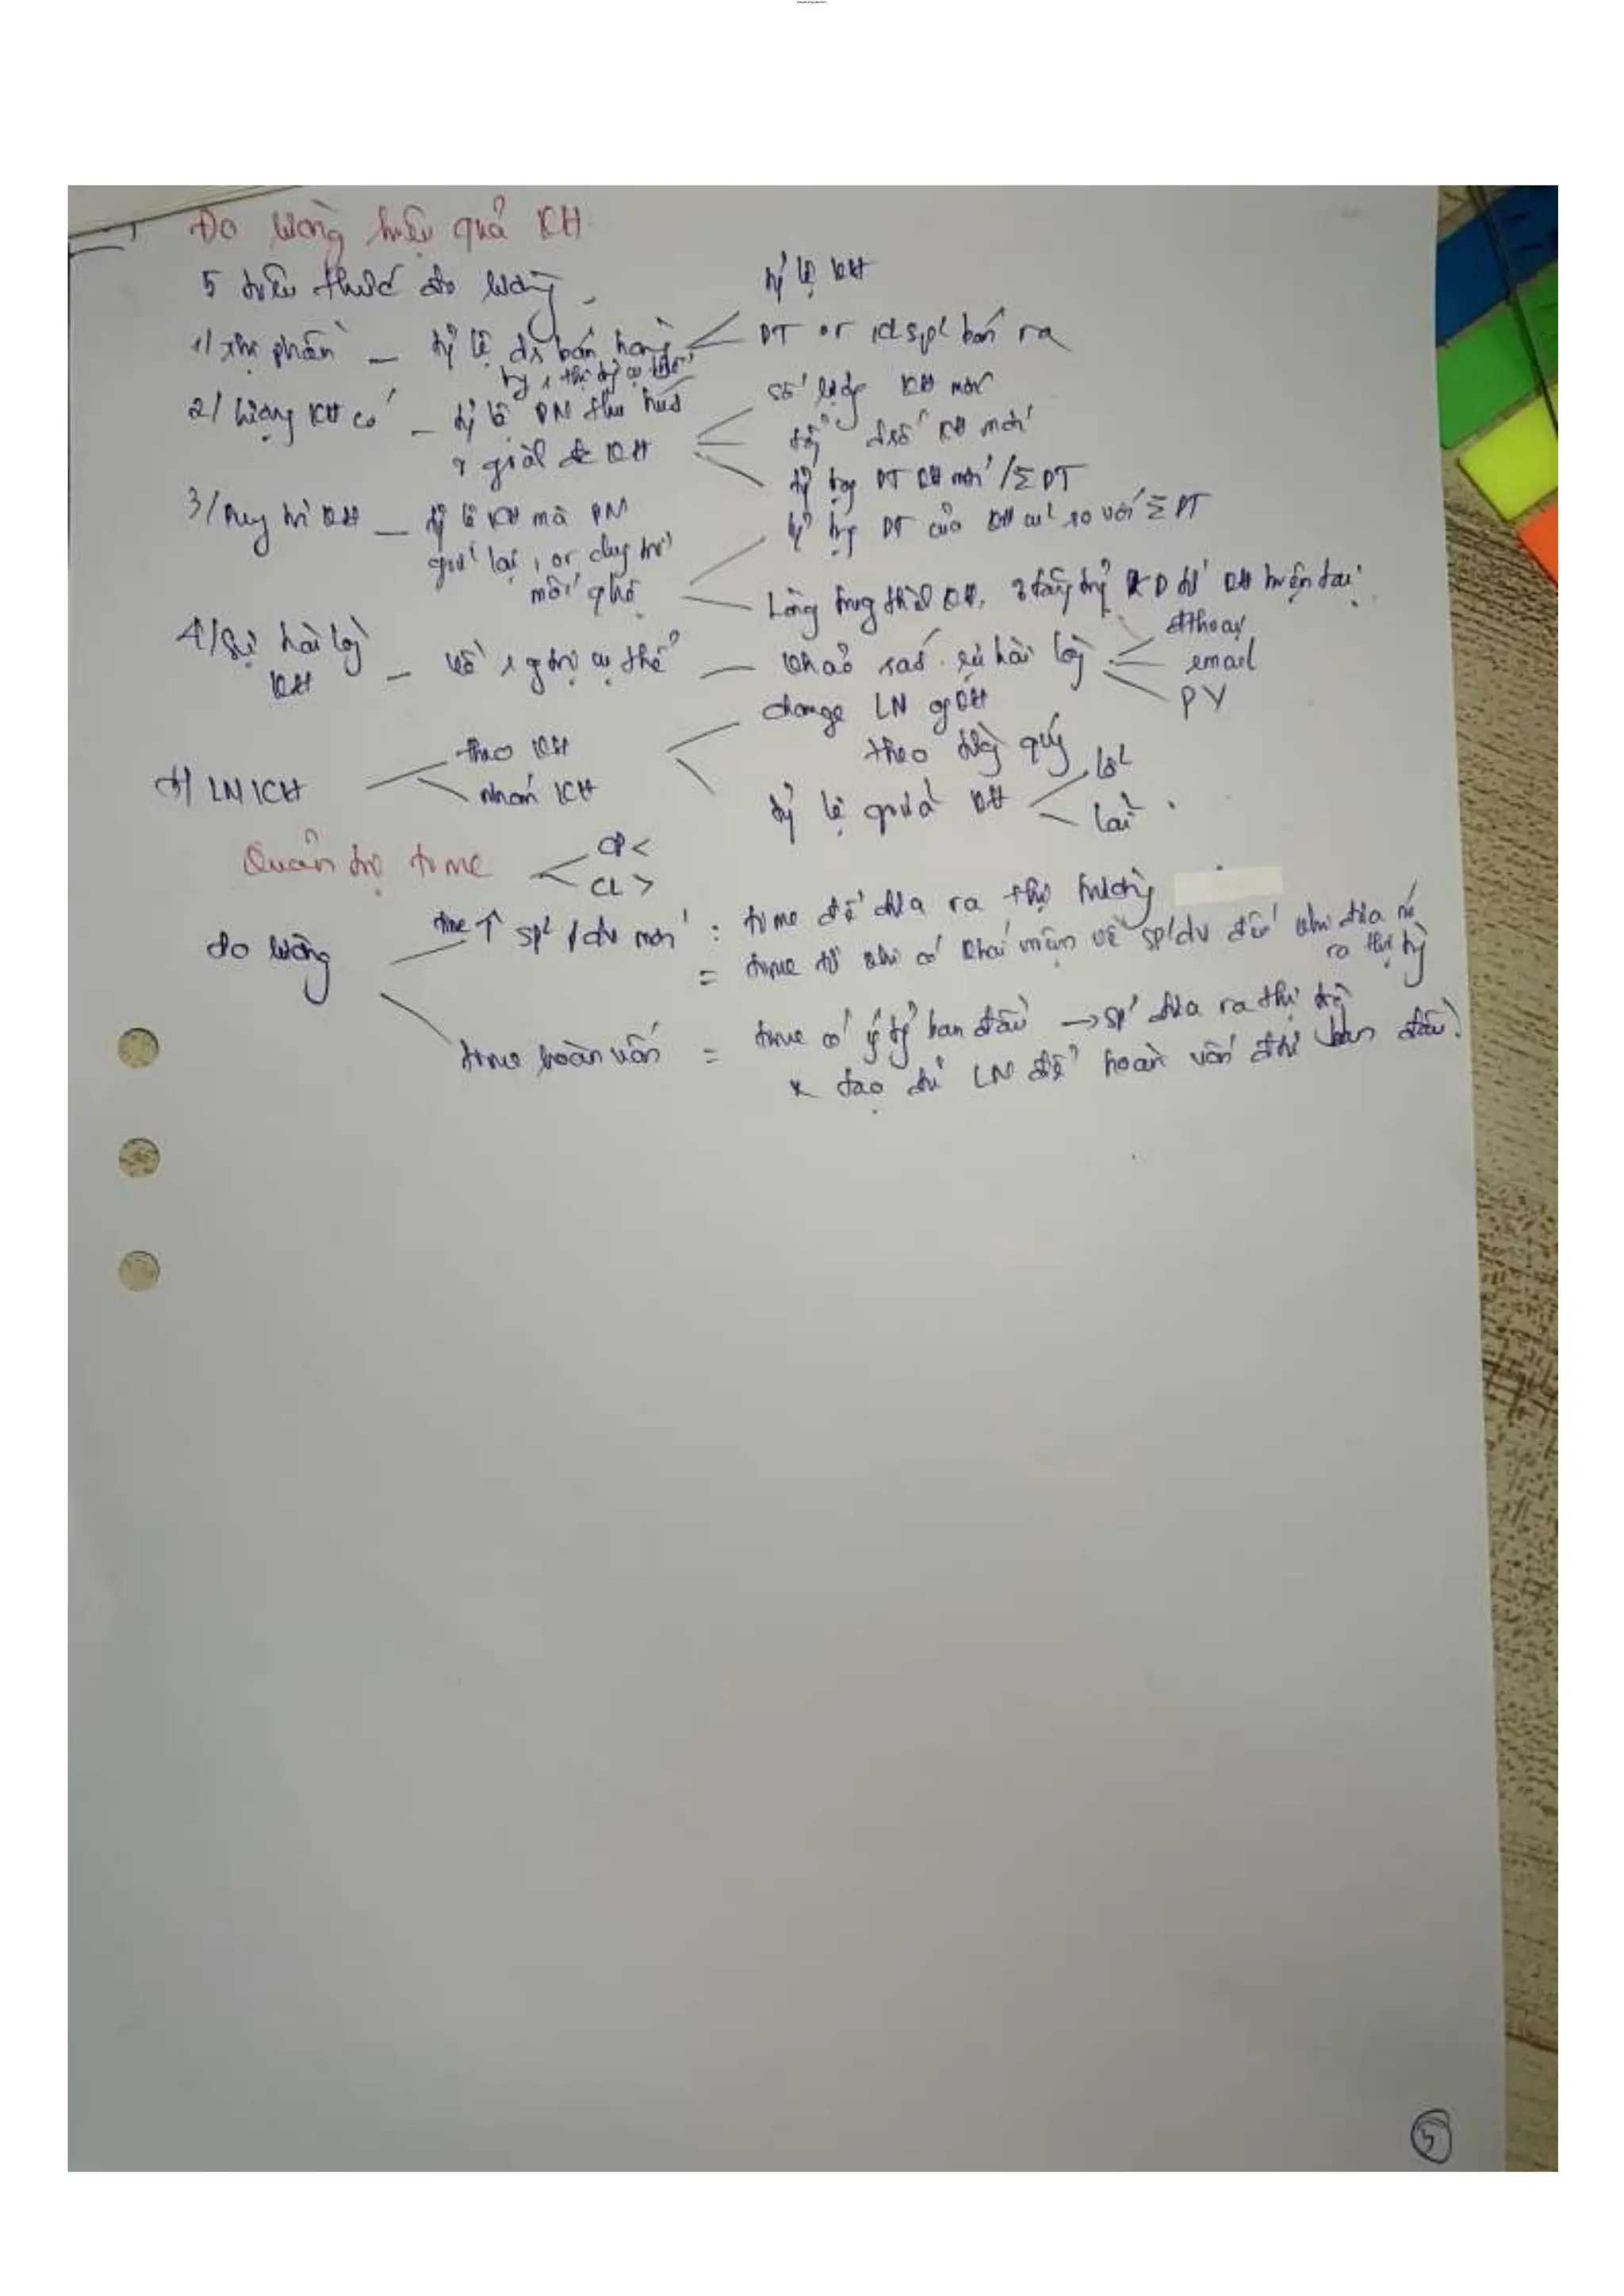 Đo lường hiệu quả KH.
5 tiêu thức đo lường
1/ Thị phần — tỷ lệ ds bán hàng
tỷ lệ KH
DT or klsp' bán ra
2/ lượng KH có — tỷ lệ DN thu hút
số lượng KH mới
KH mới
tỷ trg DT KH mới / Σ DT
3/ Duy trì KH — tỷ lệ KH mà DN
giữ lại, or duy trì
mối qhệ
tỷ trg DT của KH cũ so với Σ DT
Lòng trung thành KH, KD từ KH hiện tại
4/ Sự hài lg
KH — cụ thể — khảo sát sự hài lg
đthoại
email
PV
5/ LN KH
theo KH
nhóm KH
change LN KH
theo từg quý
tỷ lệ KH
lỗ
lãi
Quản trị time
CP <
CL >
đo lường
time ↑ sp'/dv mới : time để đưa ra thị trường
= time từ khi có khái niệm về sp'/dv đến khi đưa nó
ra thị tr
time hoàn vốn = time có ý tg ban đầu → sp' đưa ra thị trg
& tạo đủ LN để hoàn vốn đtư ban đầu.
5